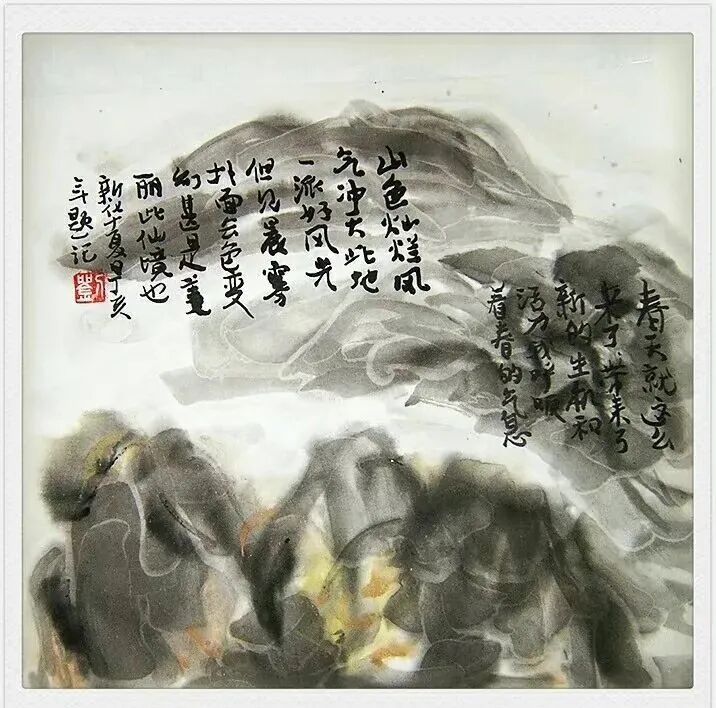 春天就这么
来了，带来了
新的生机和
活力我呼吸
着春的气息
山色灿烂风
气冲大此地
一派好风光
但见晨雾
扑面云色变
幻甚是美
丽此仙境也
新华夏丁亥
年题记